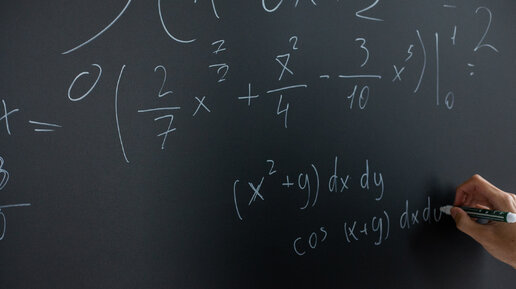 x =
0 ( 2/7 x^(7/2) + x^2/4 - 3/10 x^5 ) |_0^1 = 2
3
(x^2 + y) dx dy
cos (x+y) dx dy